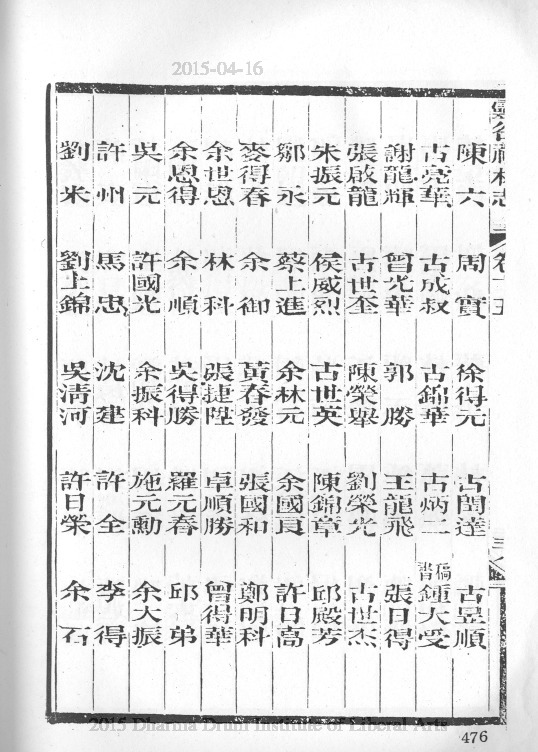 2015-04-16
陳六 周實 徐得元 古閏達 古昱順
古亮華 古成叔 古錦華 古炳二 鍾大受
謝龍輝 曾光華 郭勝 王龍飛 張日得
張啟龍 古世奎 陳榮舉 劉榮光 古世杰
朱振元 侯威烈 古世英 陳錦章 邱殿芳
鄒永 蔡上進 余林元 余國良 許日高
麥得春 余御 黃春發 張國和 鄭明科
余世恩 林科 張捷陞 卓順勝 曾得華
余恩得 余順 吳得勝 羅元春 邱弟
吳元 許國光 余振科 施元勳 余大振
許州 馬忠 沈建 許全 李得
劉米 劉上錦 吳清河 許日榮 余石
2015 Dharma Drum Institute of Liberal Arts
476